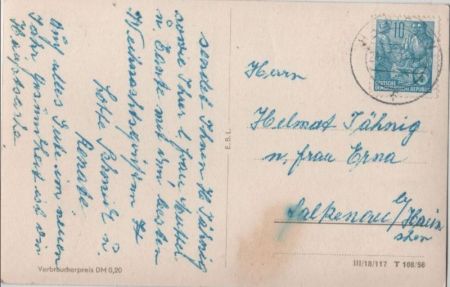 sendet Ihnen H. Jähnig
sowie Ihrer l. Frau,
u. Tante mit den besten
Weihnachtsgrüßen
Lotte Schmidt u.
Renate
Auf alles Gute im neuen
Jahr Gesundheit ist die
Hauptsache
Verbraucherpreis DM 0,20
E.B.L.
10
DEUTSCHE
DEMOKRATISCHE REPUBLIK
Herrn
Helmat Jähnig
u. Frau Erna
Falkenau b/Hain
chen
III/18/117 T 108/56